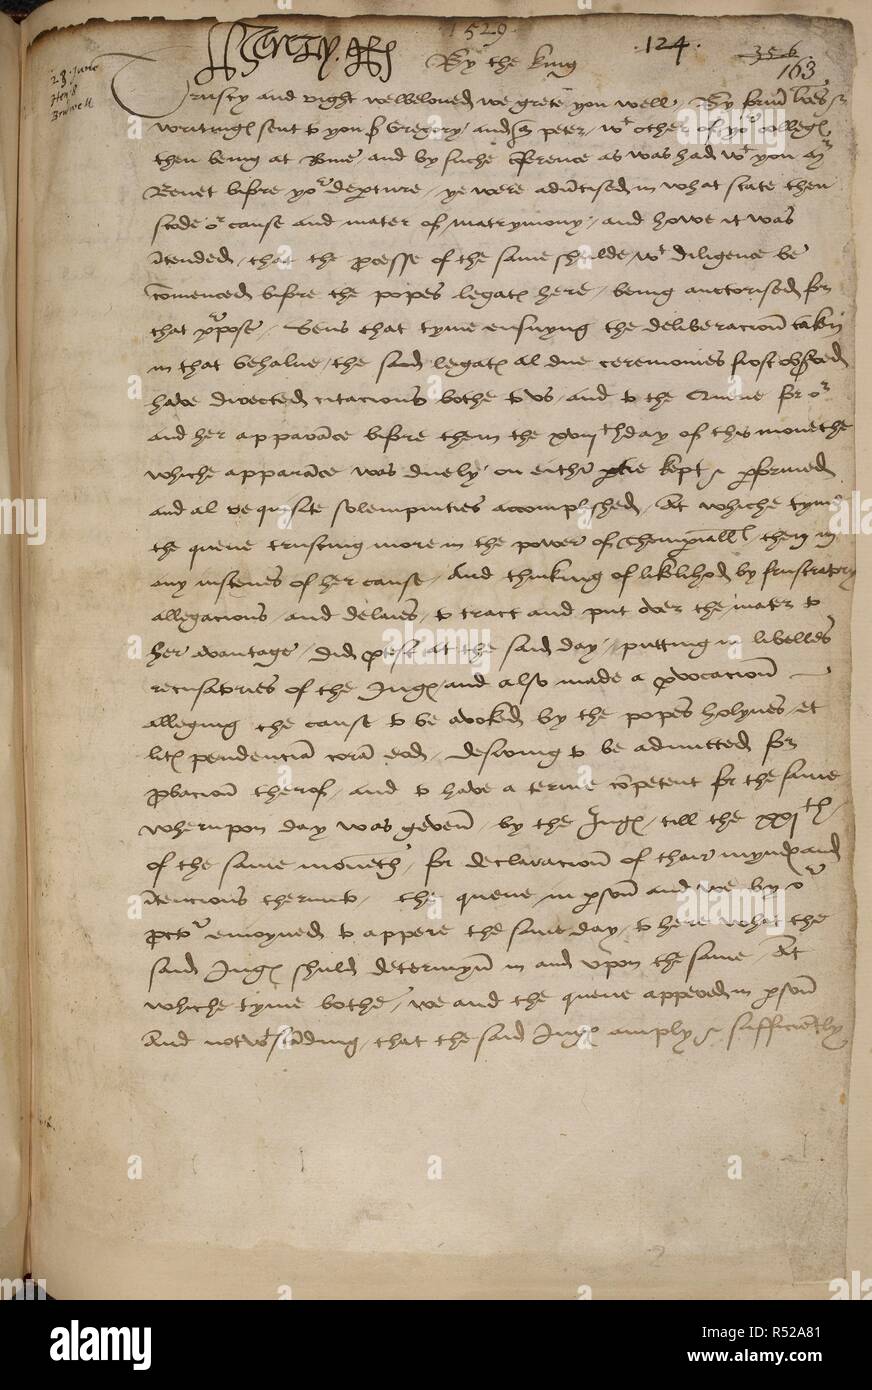 1529
Henry R
By the king
.124.
356
163
23 June
Hen: 8
Trusty and right welbeloued we grete you well / By form lres &
writingꝭ sent to you sr Gregory / and sr peter / wt other of yor collegꝭ
then being at Rome and by suche cference as was had wt you Mr
Benet bifore yor depture / ye were adũtised in what state then
stode or cause and mater of matrymony / and howe it was
ĩtended / that the pcesse of the same shulde / wt diligence be
cõmenced bifore the popes legatꝭ here / being auctorised for
that prpose / Sens that tyme ensuyng the deliberacioũ takẽ
in that behalue / the said legatꝭ al due ceremonies first obserued
have directed citacions bothe to us / and to the Quene for or
and her apparãce bifore them the xviijth day of this monethe
whiche apparãce was duely on either ptie kept & pformed
and al requisite solempnities accomplished / At whiche tyme
the quene trusting more in the power of thimpiall / then in
any iustenes of her cause / And thinking of liklihod by frustratory
allegacions / and delaies / to tract and put over the mater to
her avantage / did ptest at the said day / putting in libelles
recusatories of the Jugꝭ / and also made a pvocacioũ
alleging the cause to be avoked by the popes holynes / et
litꝭ pendenciã corã eod / desiring to be admitted for
pbacioũ therof / and to have a terme cõpetent for the same
wherupon day was geveñ / by the Jugꝭ / till the xxjth
of the same moneth / for declaracioũ of thair myndꝭ and
ĩtencions therunto / the quene / in psoũ and we by or
pctor enioyned to appere the same day / to here what the
said Jugꝭ shuld determyñ in and upon the same / At
whiche tyme bothe / we and the quene appered in psoũ
And notwtstãding / that the said Jugꝭ amply & sufficiẽtly
alamy
Image ID: R52A81
www.alamy.com